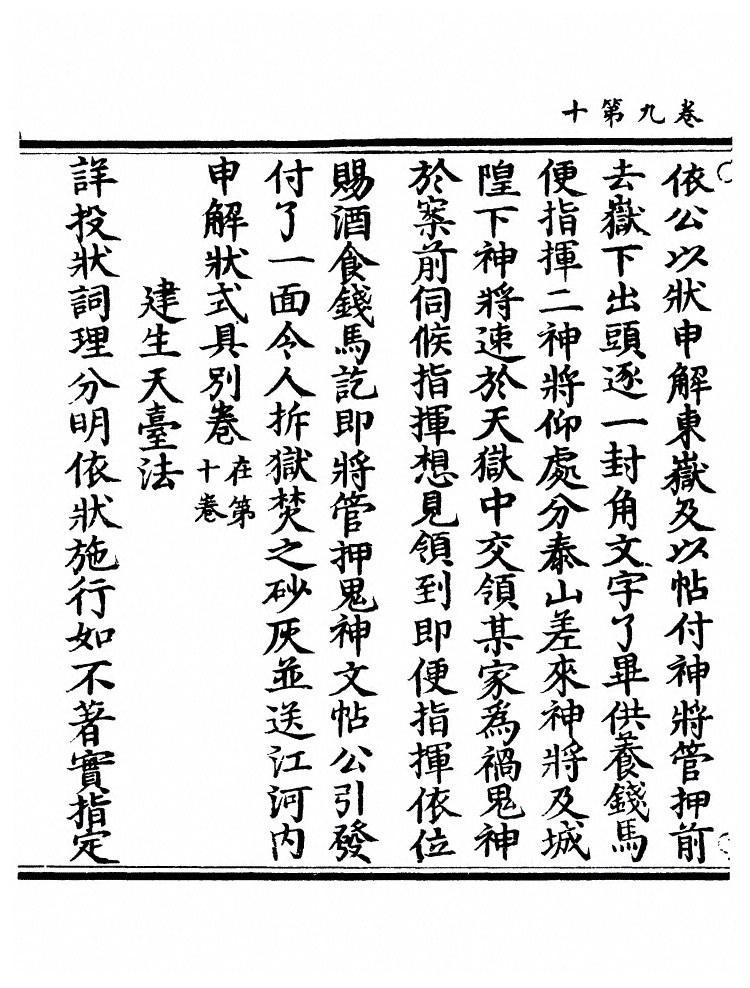 卷九第十
依公以狀申解東嶽及以帖付神將管押前
去嶽下出頭逐一封角文字了畢供養錢馬
便指揮二神將仰處分泰山差來神將及城
隍下神將速於天獄中交領某家為禍鬼神
於案前伺候指揮想見領到即便指揮依位
賜酒食錢馬訖即將管押鬼神文帖公引發
付了一面令人拆獄焚之砂灰並送江河內
申解狀式具別卷在第十卷
建生天臺法
詳投狀詞理分明依狀施行如不著實指定